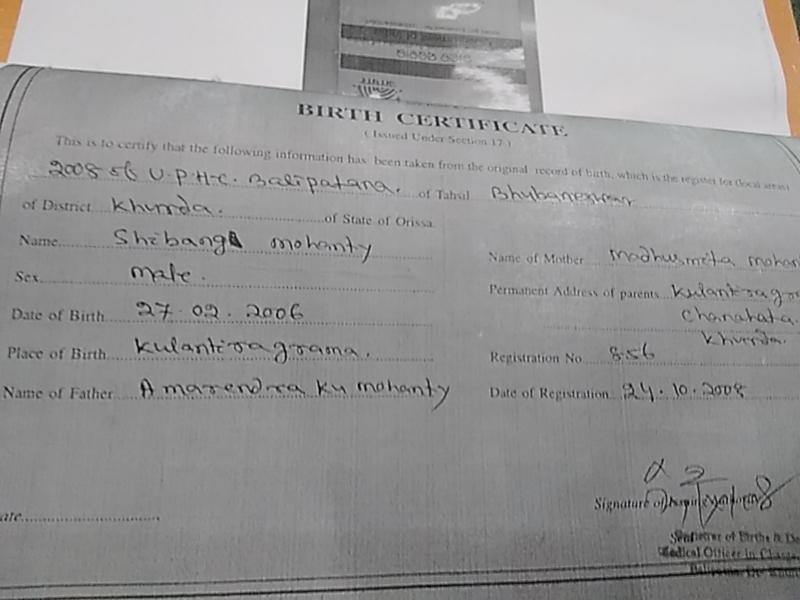 BIRTH CERTIFICATE
( Issued Under Section 17 )
This is to certify that the following information has been taken from the original record of birth, which is the register for (local areas)
2008 of U.P.H.C. Balipatana. of Tahsil Bhubaneswar
of District Khurda. of State of Orissa.
Name Mohanty
Sex male.
Date of Birth 27.02.2006
Place of Birth Kulantiragrama.
Name of Father Amarendra Ku Mohanty
Name of Mother Madhusmeta mohan
Permanent Address of parents Kulantiragra
Chanahata.
Khurda.
Registration No. 856
Date of Registration 24.10.2008
ate
Signature of
of Births &
Medical Officer in Charge